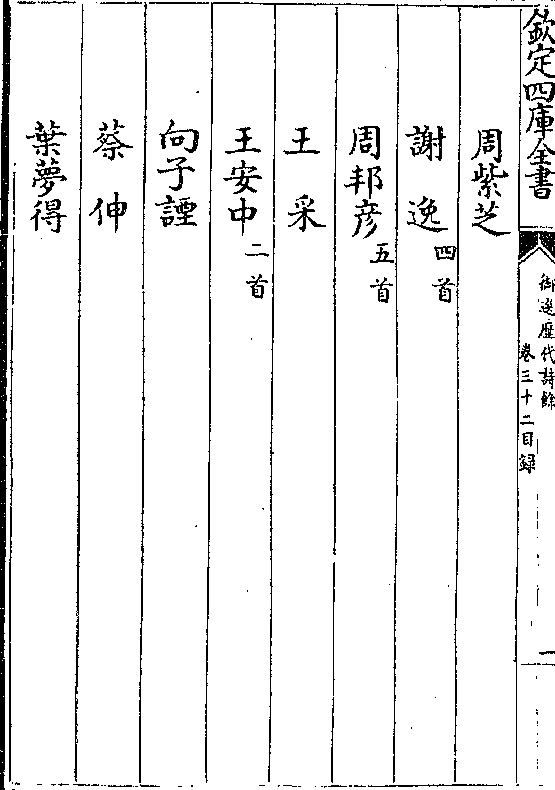 欽定四庫全書
御選歷代詩餘
卷三十二目録
一
周紫芝
謝逸四首
周邦彦五首
王采
王安中二首
向子諲
蔡伸
葉夢得